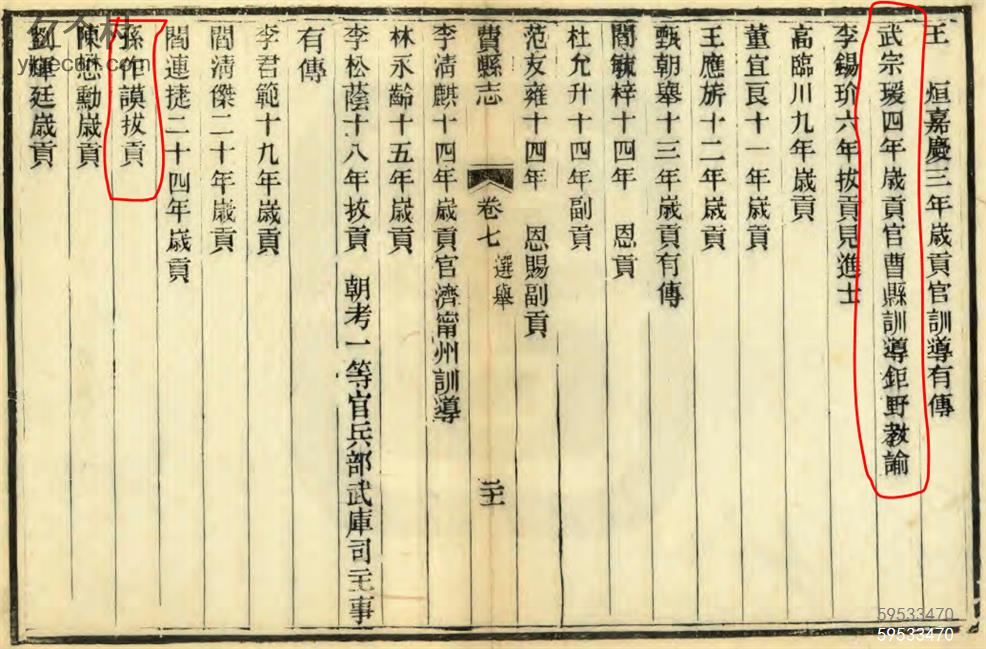 王 烜嘉慶三年歲貢官訓導有傳
武宗瑗四年歲貢官曹縣訓導鉅野教諭
李錫玠六年拔貢見進士
高臨川九年歲貢
董宜良十一年歲貢
王應旂十二年歲貢
甄朝舉十三年歲貢有傳
閻毓梓十四年 恩貢
杜允升十四年副貢
范友雍十四年 恩賜副貢
費縣志 卷七 選舉
李淸麒十四年歲貢官濟甯州訓導
林永齡十五年歲貢
李松蔭十八年拔貢 朝考一等官兵部武庫司主事
有傳
李君範十九年歲貢
閻淸傑二十年歲貢
閻連捷二十四年歲貢
孫作謨拔貢
陳懋勳歲貢
劉輝廷歲貢
59533470
59533470